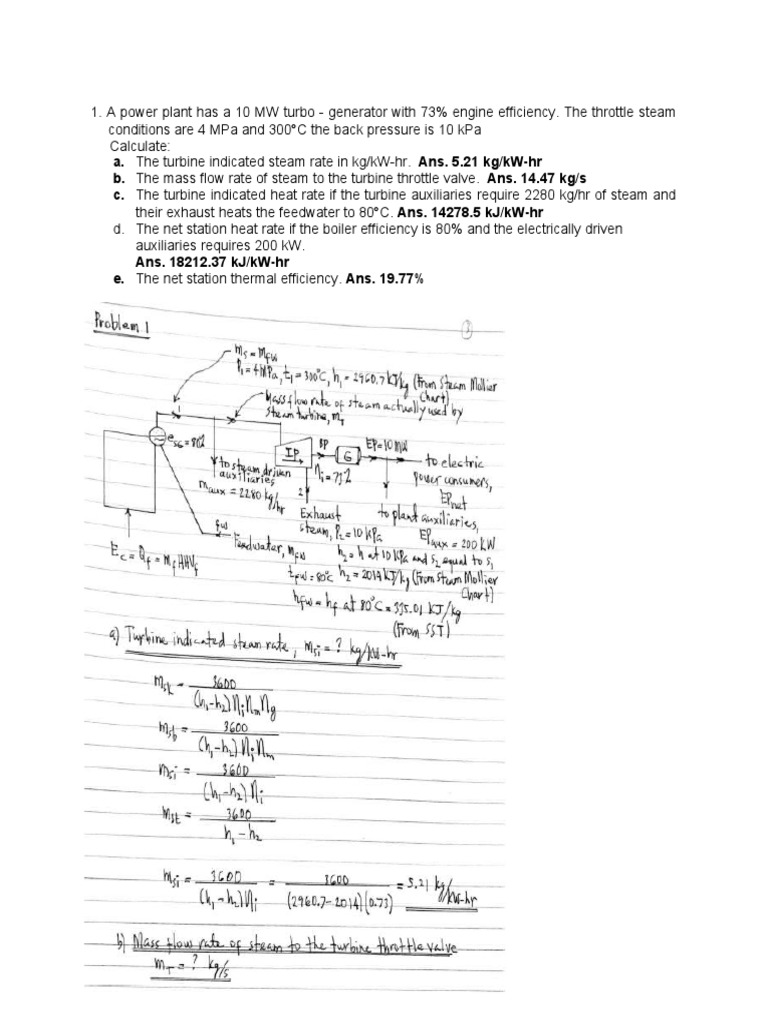 1. A power plant has a 10 MW turbo - generator with 73% engine efficiency. The throttle steam
conditions are 4 MPa and 300°C the back pressure is 10 kPa
Calculate:
a. The turbine indicated steam rate in kg/kW-hr. Ans. 5.21 kg/kW-hr
b. The mass flow rate of steam to the turbine throttle valve. Ans. 14.47 kg/s
c. The turbine indicated heat rate if the turbine auxiliaries require 2280 kg/hr of steam and
their exhaust heats the feedwater to 80°C. Ans. 14278.5 kJ/kW-hr
d. The net station heat rate if the boiler efficiency is 80% and the electrically driven
auxiliaries requires 200 kW.
Ans. 18212.37 kJ/kW-hr
e. The net station thermal efficiency. Ans. 19.77%
Problem 1
ms = mfw
P1 = 4 MPa, t1 = 300°C, h1 = 2960.7 kJ/kg (From Steam Mollier
Chart)
Mass flow rate of steam actually used by
steam turbine, mT
1
eSG = 80%
IP
BP
G
EP = 10 MW
to electric
power consumers,
EPnet
to steam driven
auxiliaries
maux = 2280 kg/hr
2
ni = 73%
Exhaust
steam, P2 = 10 kPa
to plant auxiliaries,
EPaux = 200 KW
fw
Feedwater, mfw
h2 = h at 10 kPa and s2 equal to s1
Ec = Qf = mf HHVf
tfw = 80°C h2 = 2014 kJ/kg (From Steam Mollier
Chart)
hfw = hf at 80°C = 335.01 KJ/kg
(From SST)
a) Turbine indicated steam rate, msi = ? kg/kW-hr
msk = 3600
(h1-h2) ni nm ng
msb = 3600
(h1-h2) ni nm
msi = 3600
(h1-h2) ni
mst = 3600
h1 - h2
msi = 3600 = 3600 = 5.21 kg/kW-hr
(h1-h2) ni (2960.7-2014)(0.73)
b) Mass flow rate of steam to the turbine throttle valve
mT = ? kg/s